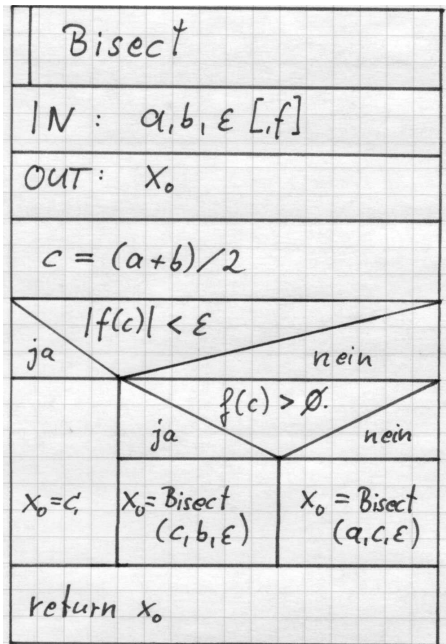 Bisect
IN: a, b, ε [, f]
OUT: x₀
c = (a+b)/2
|f(c)| < ε
ja
nein
f(c) > 0.
ja
nein
x₀=c,
x₀=Bisect
(c, b, ε)
x₀ = Bisect
(a, c, ε)
return x₀